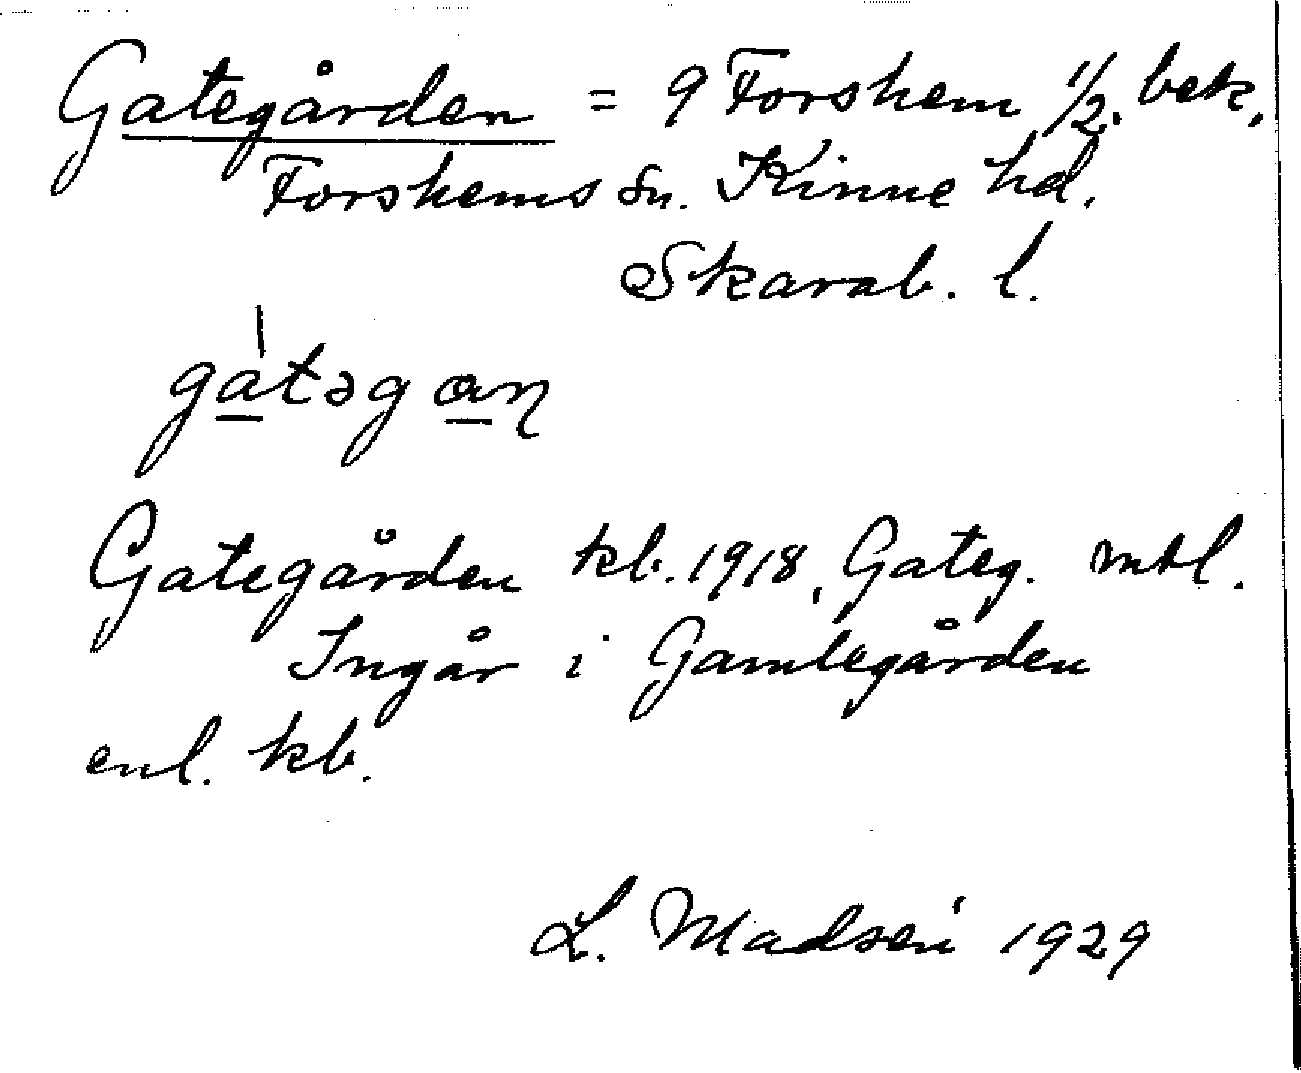 Gategården = 9 Forshem 1/2. bek.
Forshems sn. Kinne hd.
Skarab. l.
gátəgaɳ
Gategården kb. 1918, Gateg. mtl.
Ingår i Gamlegården
enl. kb.
L. Madsén 1929